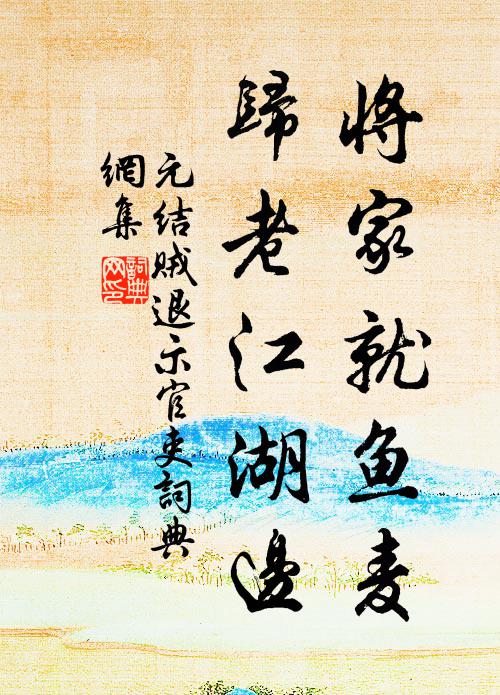 将家就鱼麦
歸老江湖邊
元结贼退示官吏詞典
網集
詞典
网印